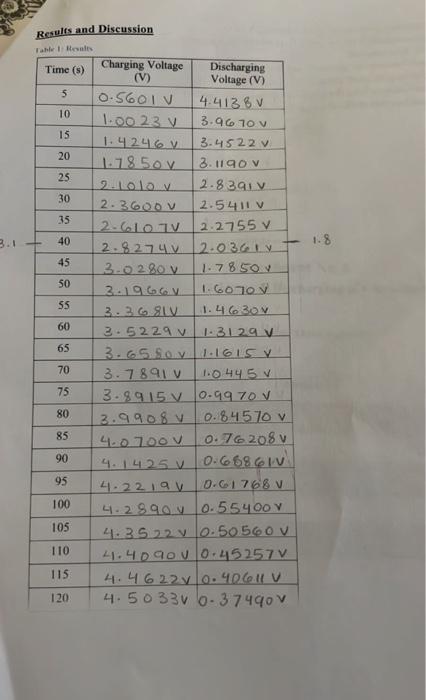 Results and Discussion
Table 1: Results
Time (s) Charging Voltage (V) Discharging Voltage (V)
5 0.5601 V 4.4138 V
10 1.0023 V 3.9670 V
15 1.4246 V 3.4522 V
20 1.7850 V 3.1190 V
25 2.1010 V 2.8391 V
30 2.3600 V 2.5411 V
35 2.6107 V 2.2755 V
3.1 — 40 2.8274 V 2.0361 V — 1.8
45 3.0280 V 1.7850 V
50 3.1966 V 1.6070 V
55 3.3681 V 1.4630 V
60 3.5229 V 1.3129 V
65 3.6580 V 1.1615 V
70 3.7891 V 1.0445 V
75 3.8915 V 0.9970 V
80 3.9908 V 0.84570 V
85 4.0700 V 0.76208 V
90 4.1425 V 0.68861 V
95 4.2219 V 0.61768 V
100 4.2890 V 0.55400 V
105 4.3522 V 0.50560 V
110 4.4090 V 0.45257 V
115 4.4622 V 0.40611 V
120 4.5033 V 0.37490 V